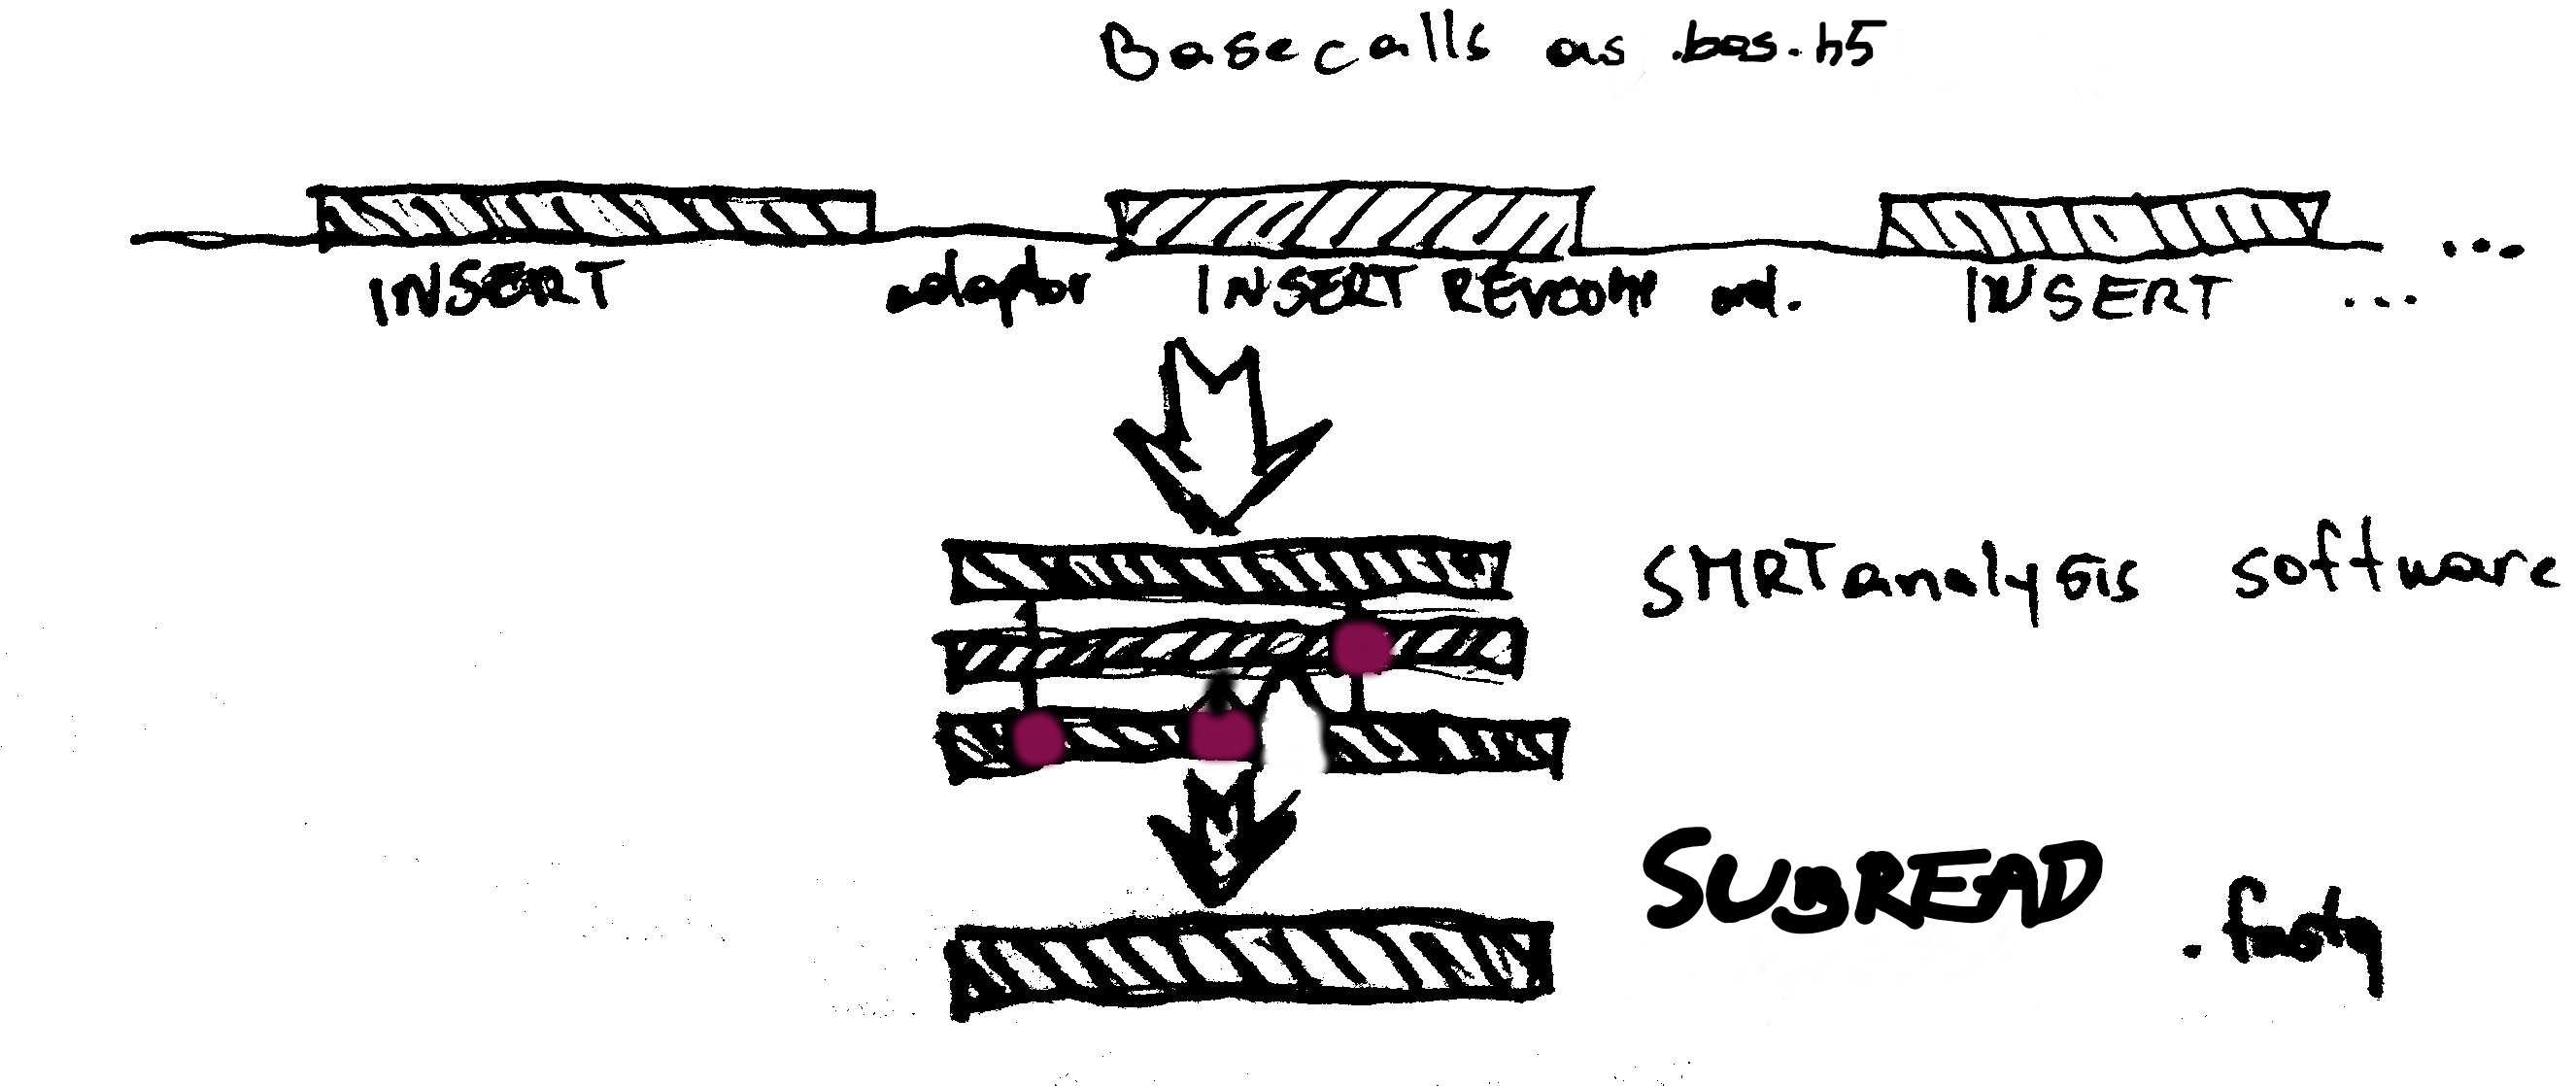 Basecalls as .bas.h5
...
INSERT adaptor INSERT REVCOMP ad. INSERT ...
SMRTanalysis software
SUBREAD
.fastq